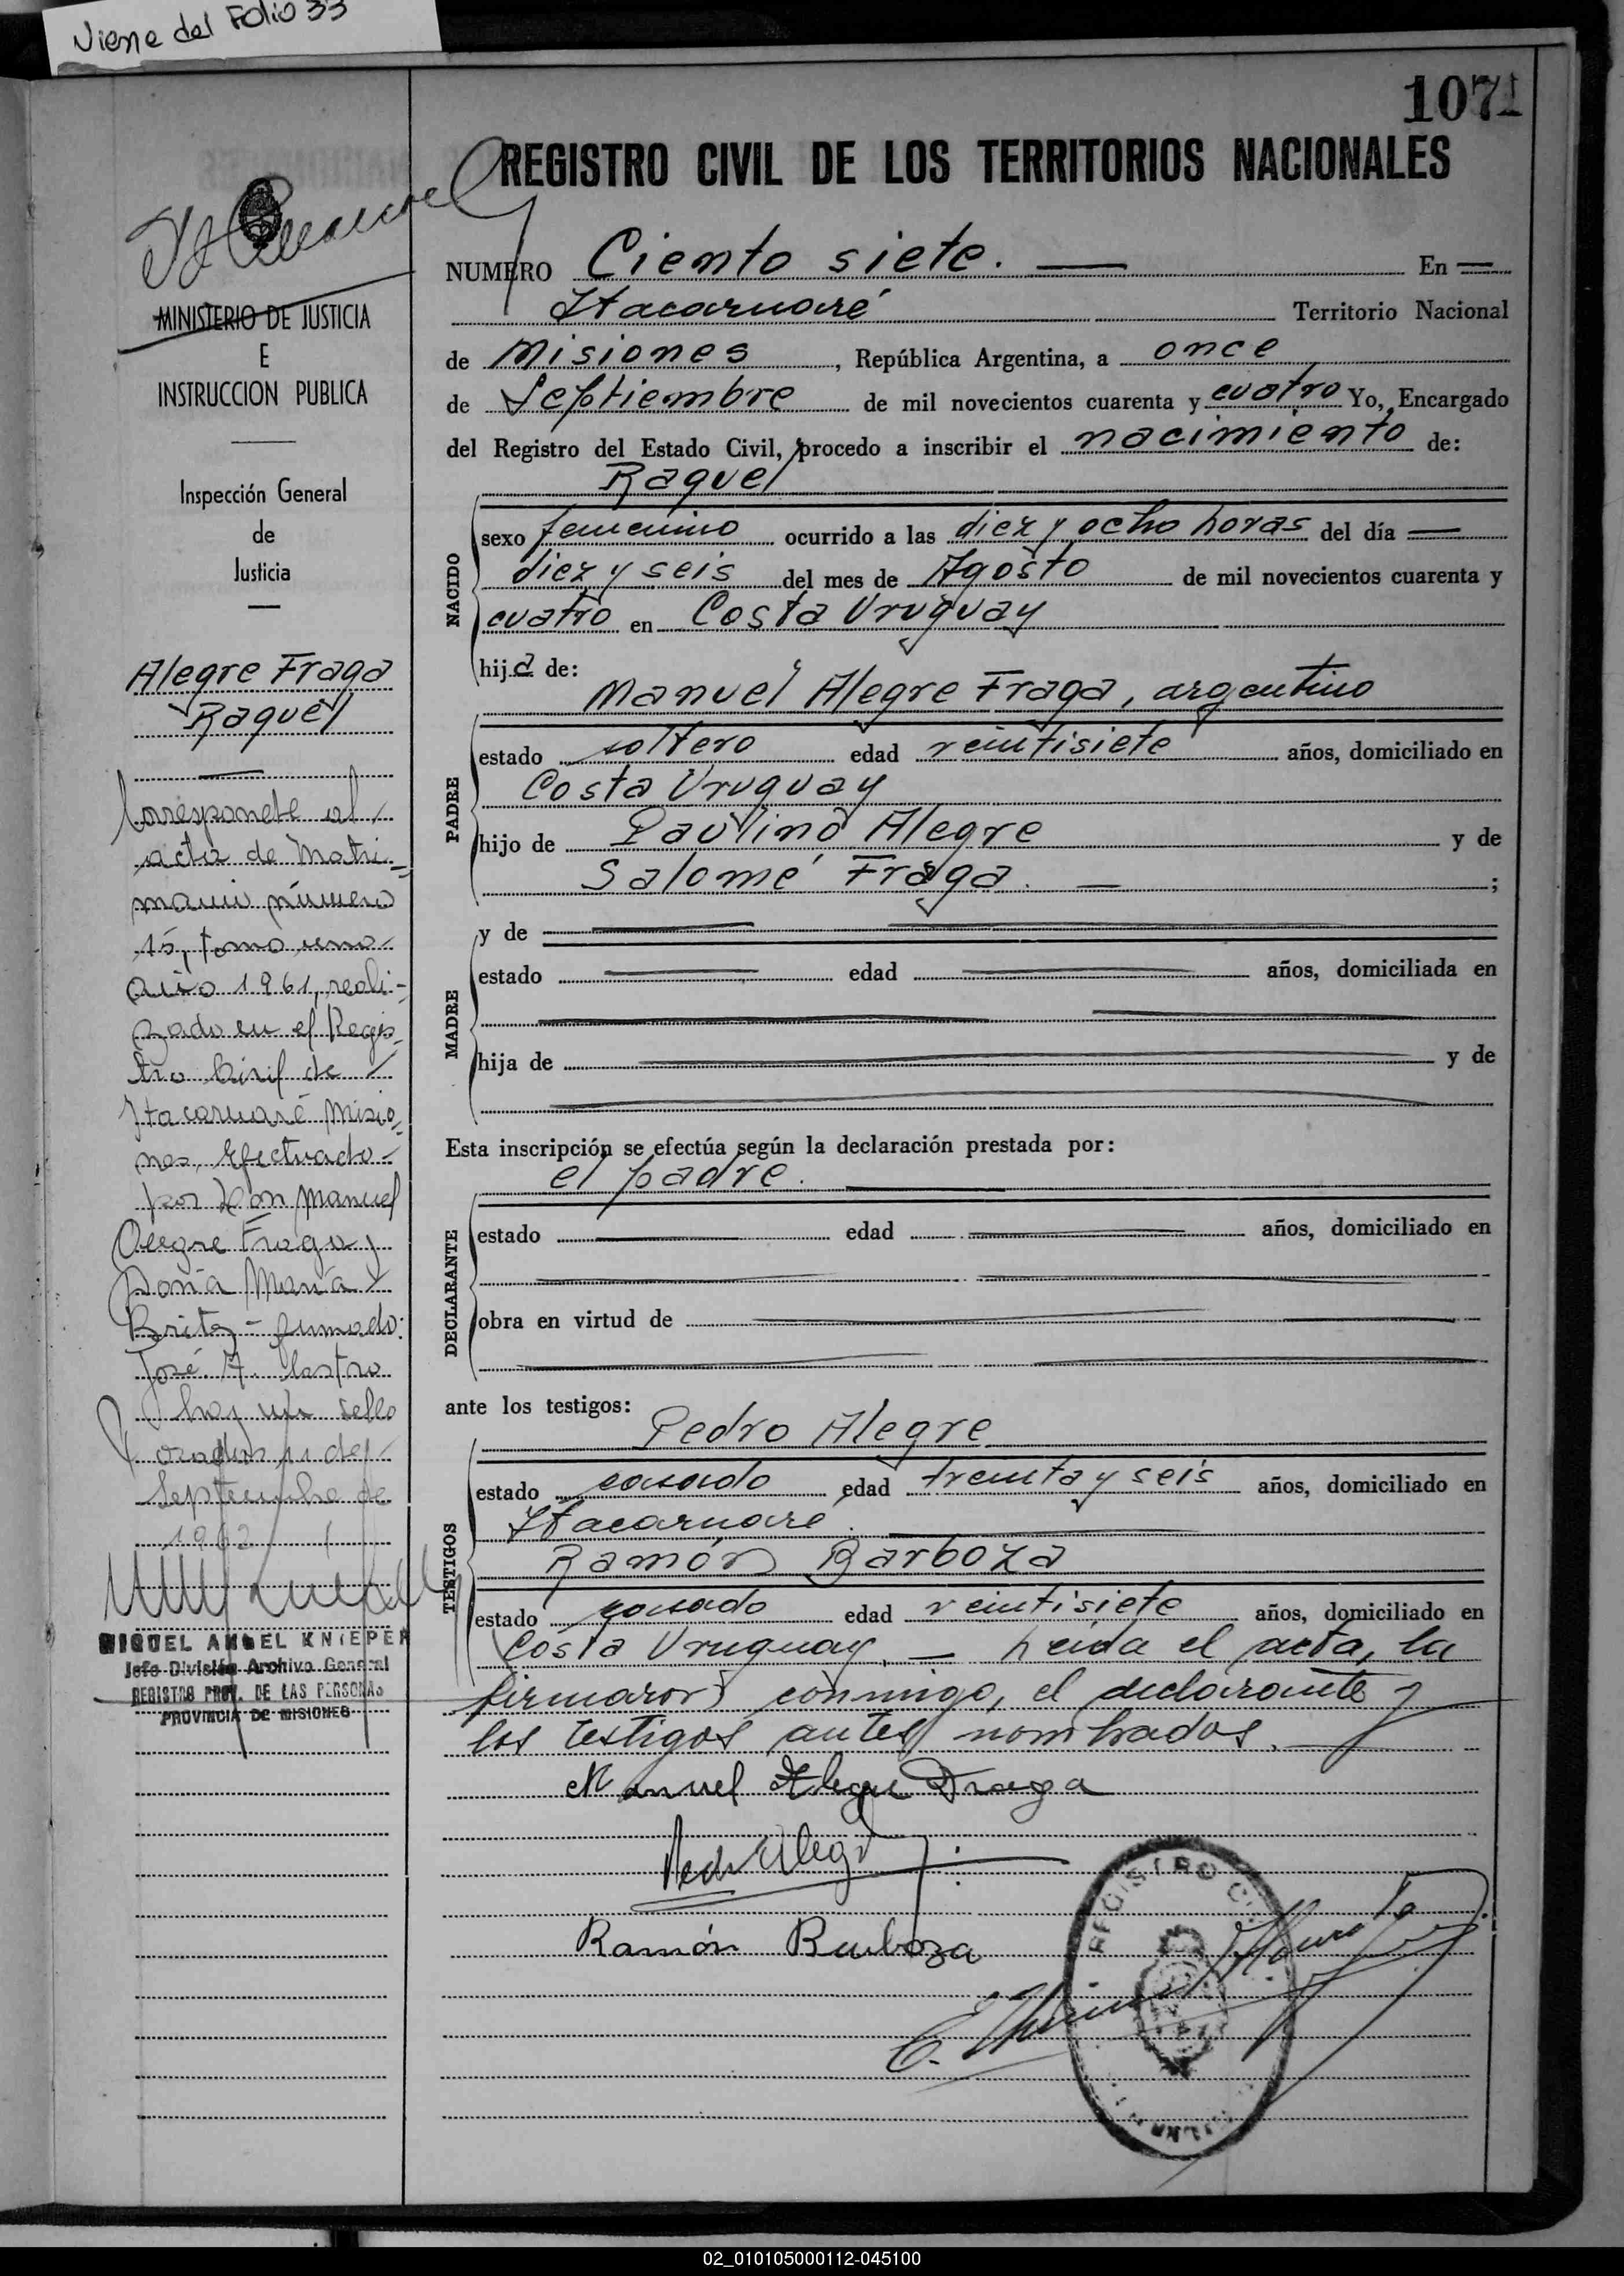 Viene del Folio 33
1071
REGISTRO CIVIL DE LOS TERRITORIOS NACIONALES
MINISTERIO DE JUSTICIA
E
INSTRUCCION PUBLICA
Inspección General
de
Justicia
Alegre Fraga
Raquel
Corresponde al
acta de Matri-
monio número
15, tomo uno
año 1961, reali-
zado en el Regis-
tro Civil de
Itacaruaré Misio-
nes, efectuado
por Don Manuel
Alegre Fraga y
Doña María
Britez - firmado:
José A. Castro
hay un sello
Septiembre de
1962
MIGUEL ANGEL KNIEPER
Jefe División Archivo General
REGISTRO PROV. DE LAS PERSONAS
PROVINCIA DE MISIONES
NUMERO Ciento siete. — En —
Itacaruaré Territorio Nacional
de Misiones, República Argentina, a once
de Septiembre de mil novecientos cuarenta y cuatro Yo, Encargado
del Registro del Estado Civil, procedo a inscribir el nacimiento de:
Raquel
NACIDO
sexo femenino ocurrido a las diez y ocho horas del día —
diez y seis del mes de Agosto de mil novecientos cuarenta y
cuatro en Costa Uruguay
hija de:
Manuel Alegre Fraga, argentino
PADRE
estado soltero edad veintisiete años, domiciliado en
Costa Uruguay
hijo de Paulino Alegre y de
Salomé Fraga. — ;
MADRE
y de
estado edad años, domiciliada en
hija de y de
Esta inscripción se efectúa según la declaración prestada por:
el padre.
DECLARANTE
estado edad años, domiciliado en
obra en virtud de
ante los testigos:
Pedro Alegre
TESTIGOS
estado casado edad treinta y seis años, domiciliado en
Itacaruaré.
Ramón Barboza
estado casado edad veintisiete años, domiciliado en
Costa Uruguay. — Leída el acta, la
firmaron conmigo, el declarante y
los testigos antes nombrados.
Manuel Alegre Fraga
Pedro Alegre
Ramón Barboza
REGISTRO
02_010105000112-045100